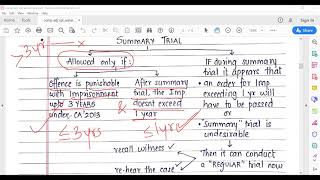 comp adj cal_same... .pdf
>3 yrs
SUMMARY TRIAL
Allowed only if:
Offence is punishable
with Imprisonment
upto 3 YEARS
under CA 2013
≤ 3 yrs
&
After summary
trial, the Imp
doesnt exceed
1 year
≤ 1 yr
IF during summary
trial it appears that
an order for Imp
exceeding 1 yr will
have to be passed
or
"Summary" trial is
undesirable
recall witness
re-hear the case
Then it can conduct
a "REGULAR" trial now